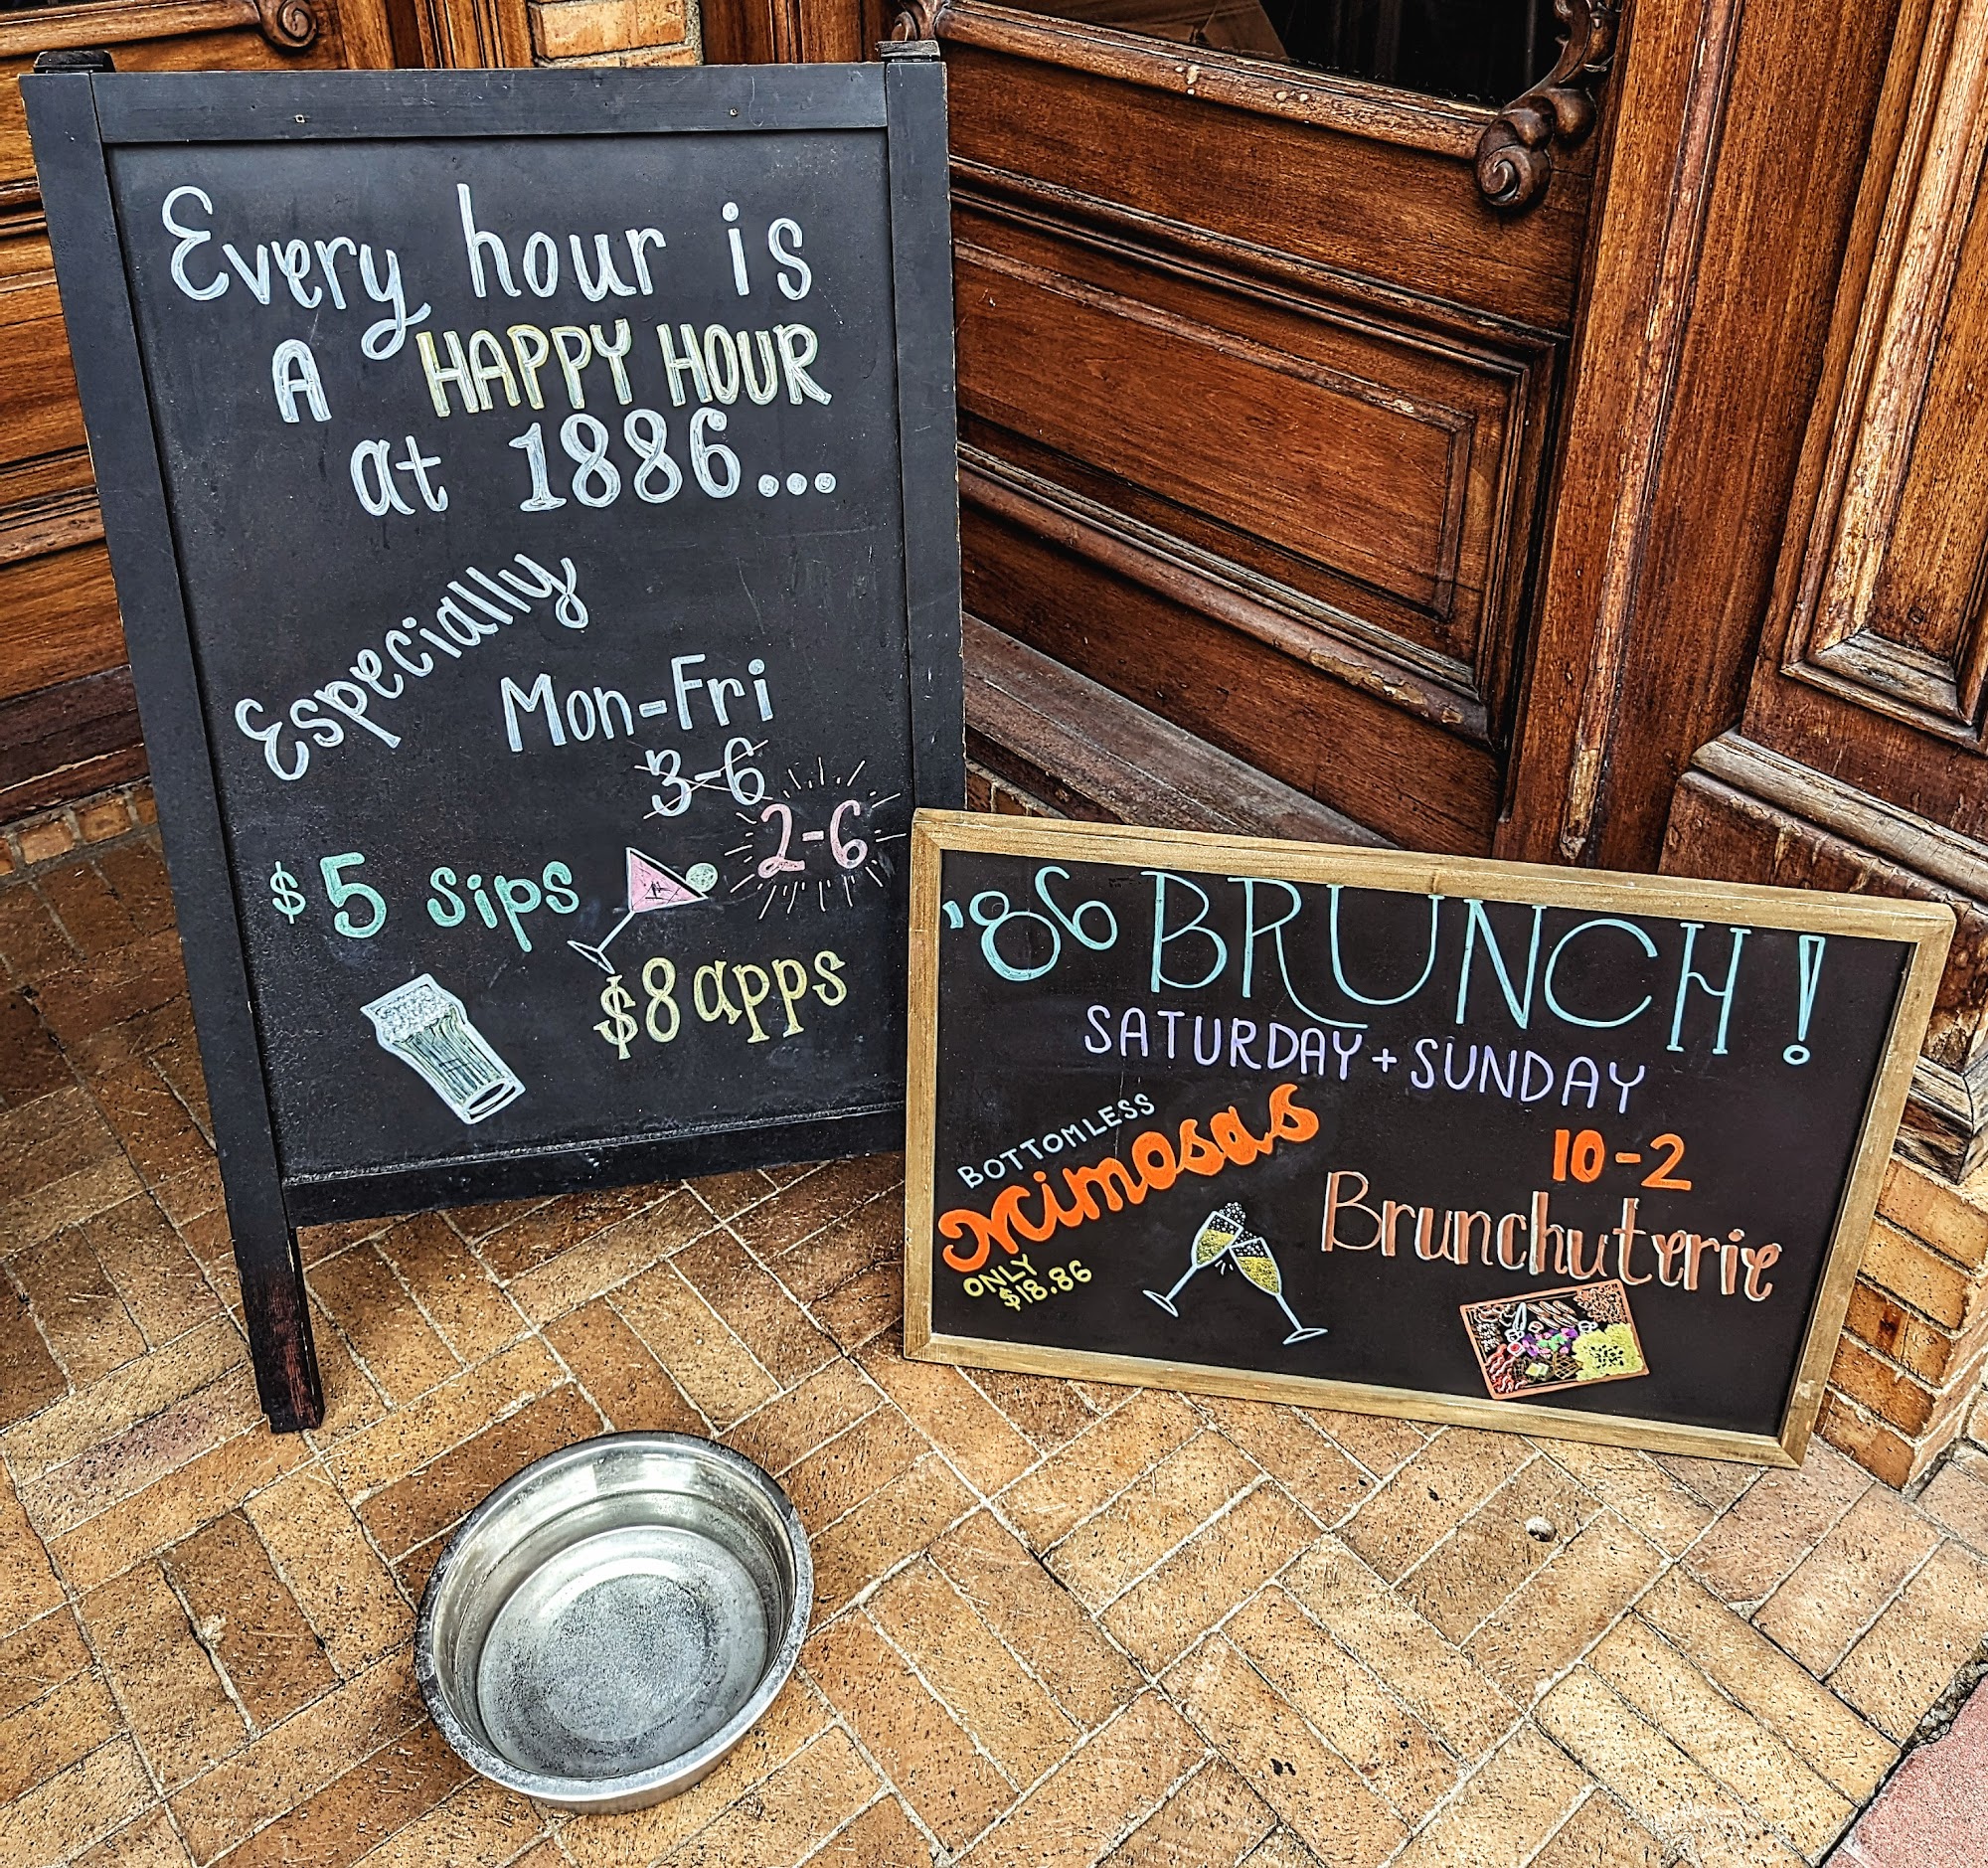 Every hour is
A HAPPY HOUR
at 1886...
Especially
Mon-Fri
3-6
2-6
$5 sips
$8 apps
'86 BRUNCH!
SATURDAY + SUNDAY
10-2
BOTTOMLESS
mimosas
ONLY
$18.86
Brunchuterie